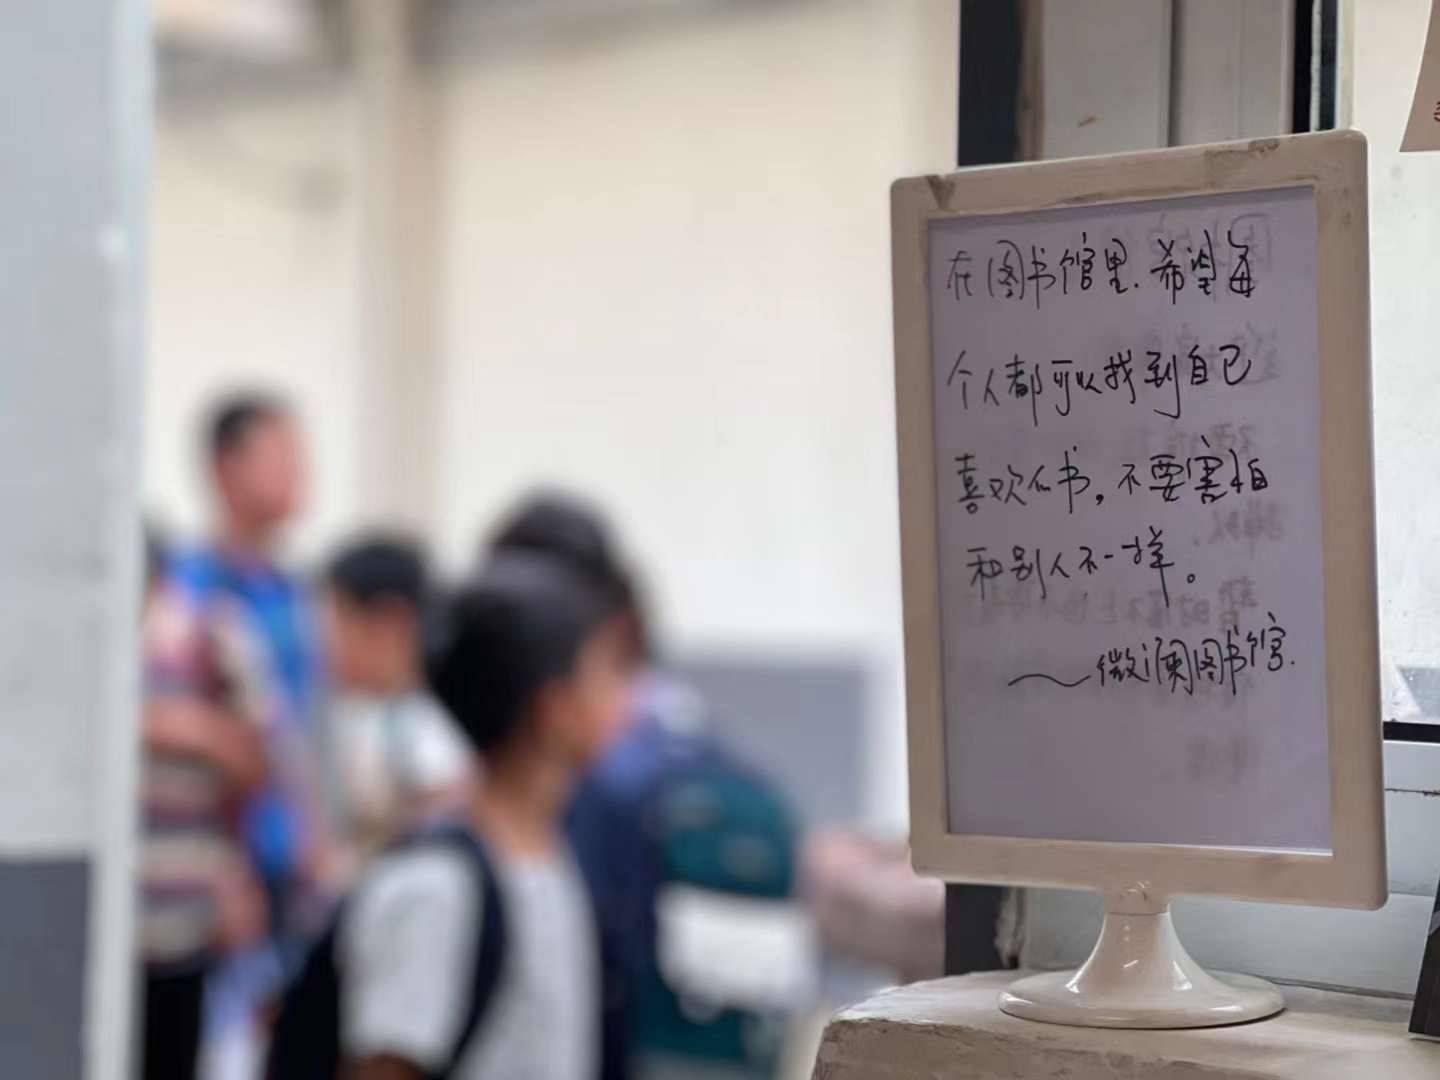 在图书馆里.希望每
个人都可以找到自己
喜欢的书，不要害怕
和别人不一样。
～微澜图书馆.